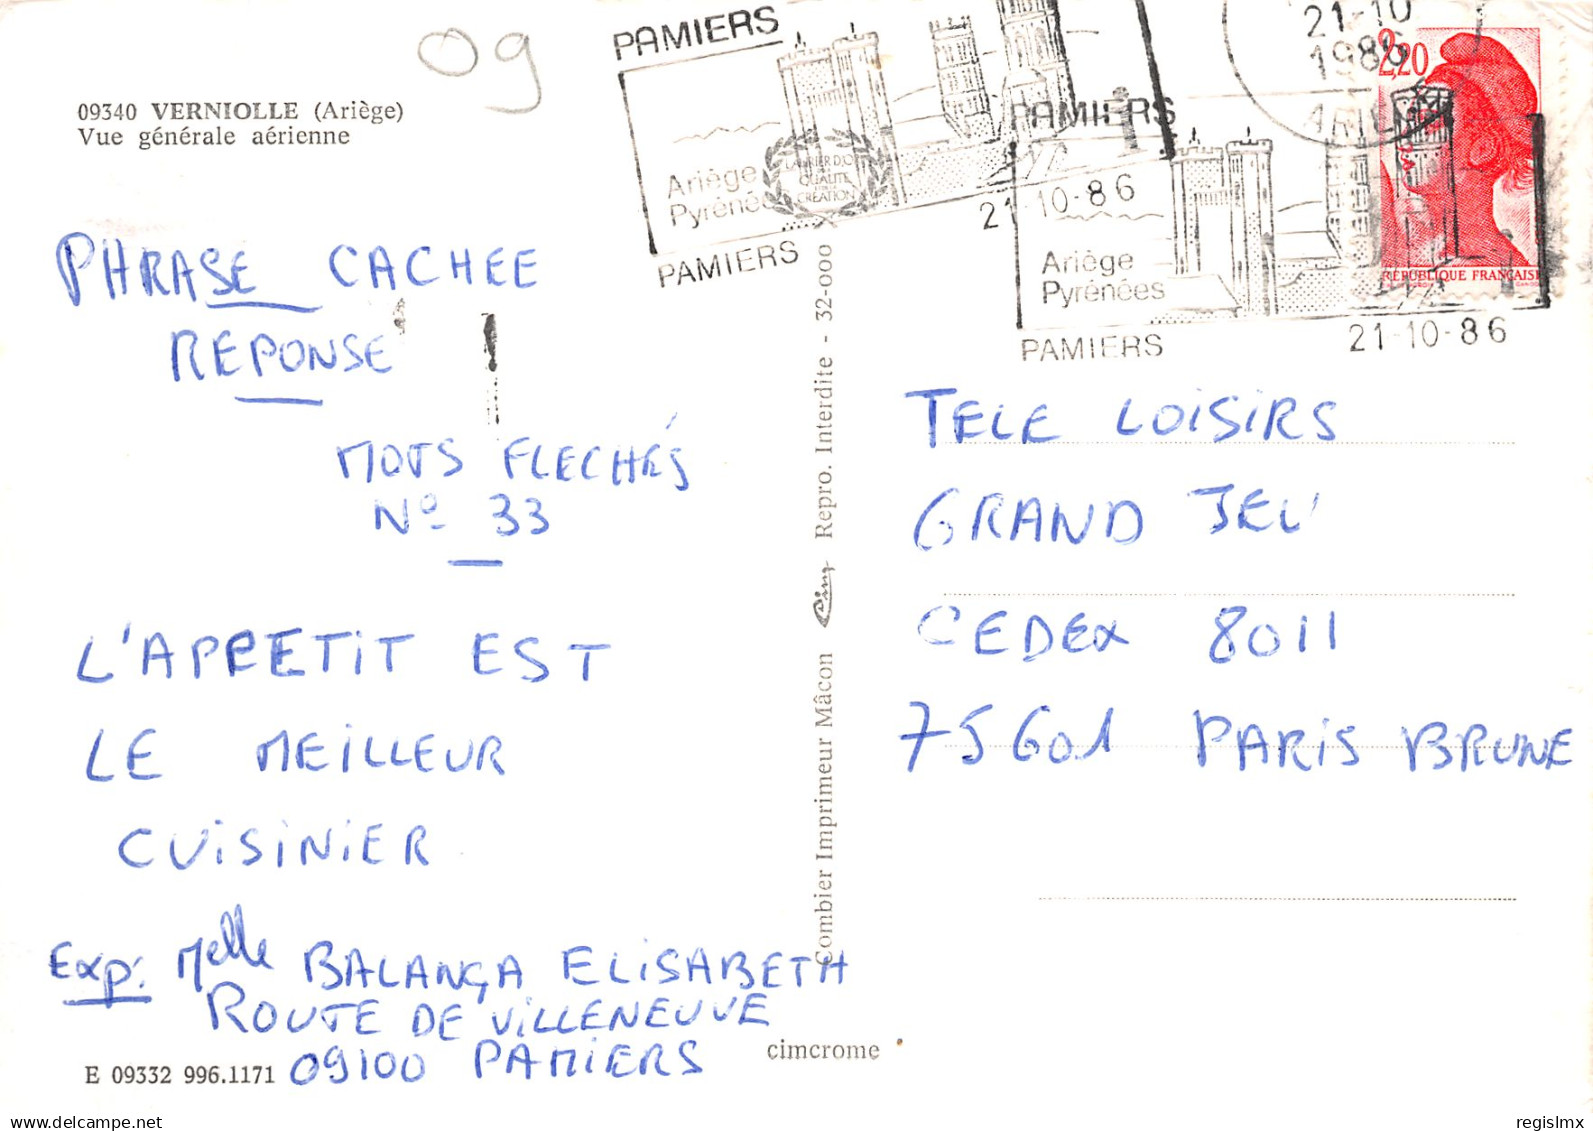 09
09340 VERNIOLLE (Ariège)
Vue générale aérienne
PAMIERS
Ariège
PAMIERS
21-10-86
21-10
1986
2,20
RÉPUBLIQUE FRANÇAISE
PAMIERS
Ariège
Pyrénées
PAMIERS
21-10-86
PHRASE CACHEE
REPONSE
MOTS FLECHÉS
Nº 33
L'APPETIT EST
LE MEILLEUR
CUISINIER
Exp: Melle BALANÇA ELISABETH
ROUTE DE VILLENEUVE
09100 PAMIERS
E 09332 996.1171
cimcrome
Combier Imprimeur Mâcon Cim Repro. Interdite - 32-000
TELE LOISIRS
GRAND JEU
CEDEX 8011
75601 PARIS BRUNE
regislmx